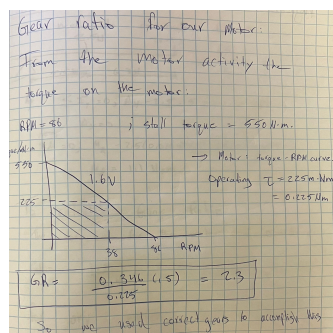 Gear ratio for our Motor:
From the Motor activity the
torque on the motor:
RPM = 86 ; stall torque = 550 N·m.
550
→ Motor: torque-RPM curve.
1.6V
Operating τ = 225m·Nm
= 0.225Nm
225
38 86 RPM
GR = 0.346 (1.5) / 0.225 = 2.3
So we used correct gears to accomplish this